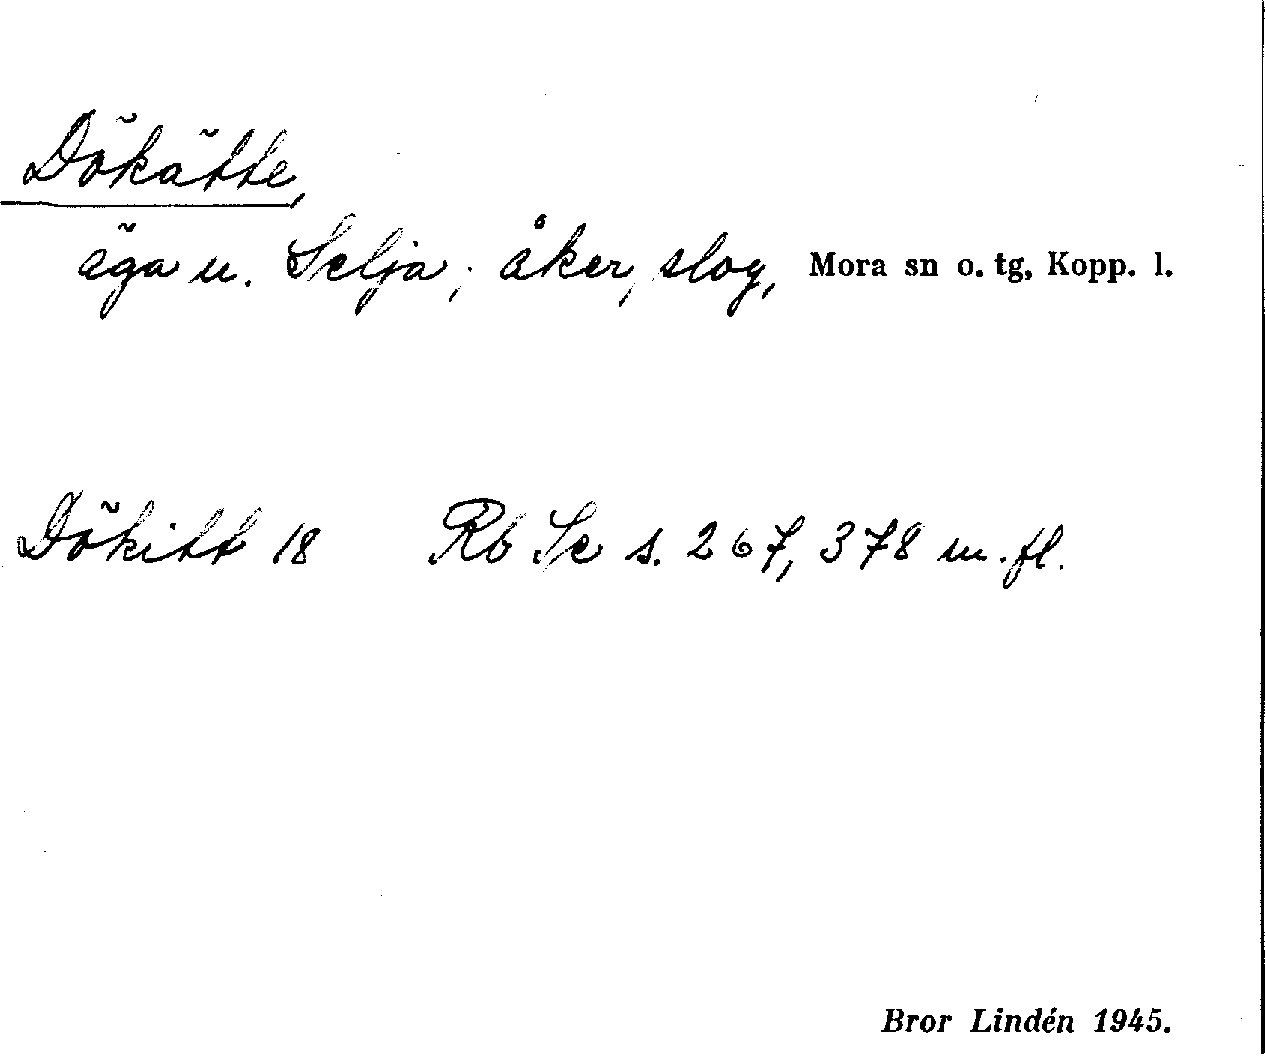 Dökätte,
äga u. Selja; åker, slog, Mora sn o. tg, Kopp. l.
Dökitt 18 Rb Se s. 267, 378 m. fl.
Bror Lindén 1945.